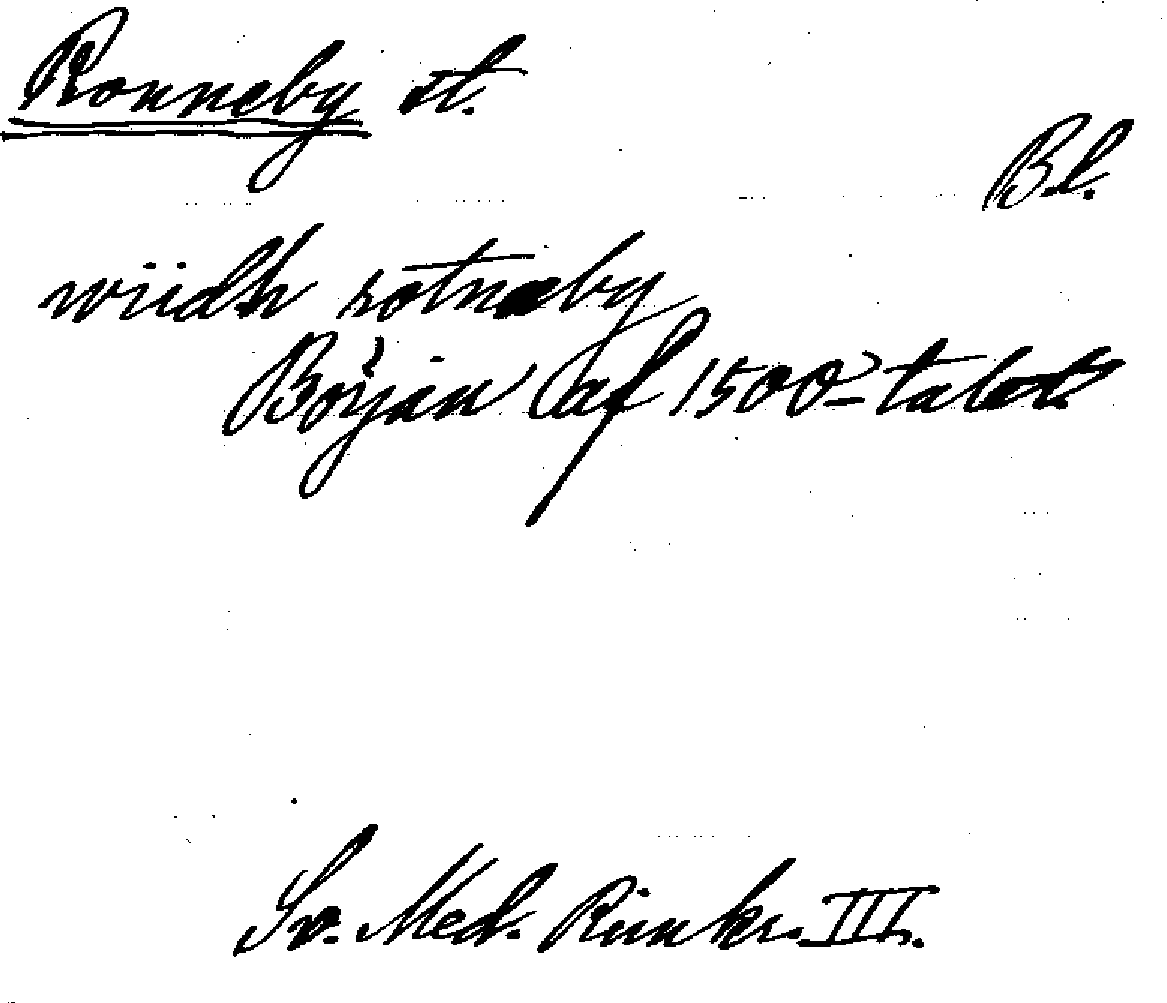 Ronneby st.
Bl.
wiidh rotneby
Början af 1500-talet.
Sv. Med. Rimkr. III.